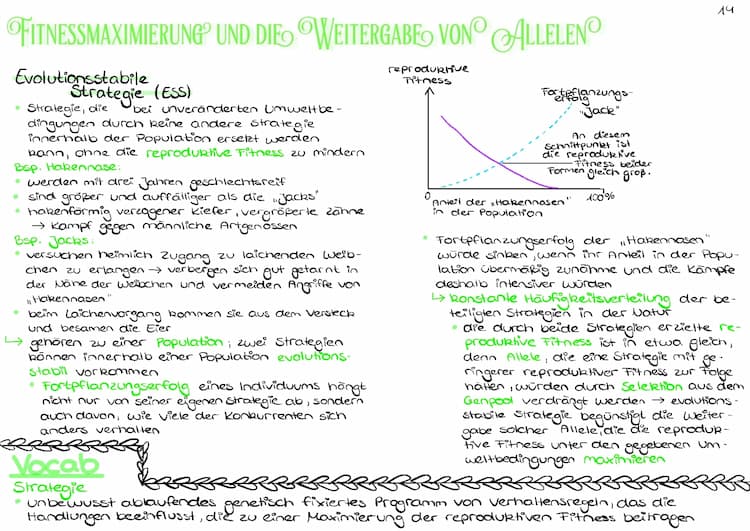 14
Fitnessmaximierung und die Weitergabe von Allelen
Evolutionsstabile
Strategie (ESS)
• Strategie, die bei unveränderten Umweltbe-
dingungen durch keine andere Strategie
innerhalb der Population ersetzt werden
kann, ohne die reproduktive Fitness zu mindern
Bsp. Hakennase:
• werden mit drei Jahren geschlechtsreif
• sind größer und auffälliger als die „Jacks"
• hakenförmig verzogener Kiefer, vergrößerte Zähne
→ Kampf gegen männliche Artgenossen
Bsp. Jacks:
• versuchen heimlich Zugang zu laichenden Weib-
chen zu erlangen → verbergen sich gut getarnt in
der Nähe der Weibchen und vermeiden Angriffe von
„Hakennasen"
• beim Laichvorgang kommen sie aus dem Versteck
und besamen die Eier
↳ gehören zu einer Population; zwei Strategien
können innerhalb einer Population evolutions-
stabil vorkommen
• Fortpflanzungserfolg eines Individuums hängt
nicht nur von seiner eigenen Strategie ab, sondern
auch davon, wie viele der Konkurrenten sich
anders verhalten
reproduktive
Fitness
Fortpflanzungs-
erfolg
„Jack"
An diesem
Schnittpunkt ist
die reproduktive
Fitness beider
Formen gleich groß.
0
100%
Anteil der „Hakennasen"
in der Population
• Fortpflanzungserfolg der „Hakennasen"
würde sinken, wenn ihr Anteil in der Popu-
lation übermäßig zunähme und die Kämpfe
deshalb intensiver würden
↳ konstante Häufigkeitsverteilung der be-
teiligten Strategien in der Natur
• die durch beide Strategien erzielte re-
produktive Fitness ist in etwa gleich,
denn Allele, die eine Strategie mit ge-
ringerer reproduktiver Fitness zur Folge
hätten, würden durch Selektion aus dem
Genpool verdrängt werden → evolutions-
stabile Strategie begünstigt die Weiter-
gabe solcher Allele, die die reproduk-
tive Fitness unter den gegebenen Um-
weltbedingungen maximieren
Vocab
Strategie
• unbewusst ablaufendes genetisch fixiertes Programm von Verhaltensregeln, das die
Handlungen beeinflusst, die zu einer Maximierung der reproduktiven Fitness beitragen